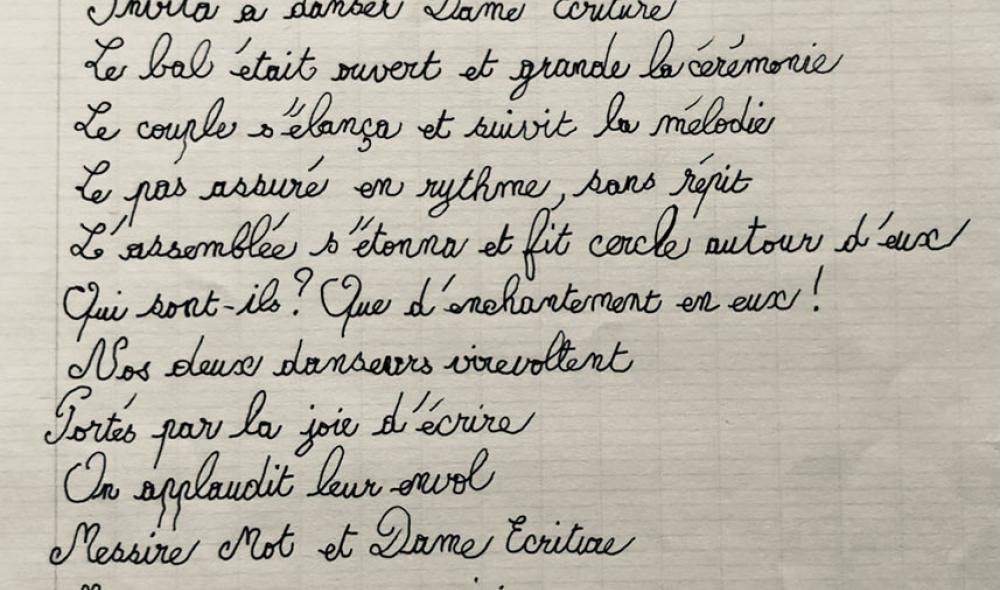 Invita à danser Dame Ecriture
Le bal était ouvert et grande la cérémonie
Le couple s'élança et suivit la mélodie
Le pas assuré en rythme, sans répit
L'assemblée s'étonna et fit cercle autour d'eux
Qui sont-ils? Que d'enchantement en eux!
Nos deux danseurs virevoltent
Portés par la joie d'écrire
On applaudit leur envol
Messire Mot et Dame Ecriture